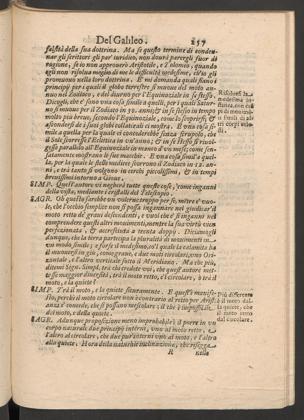 Del Galileo. 257
falsità della sua dottrina. Ma se questo termine di condennar
gli scrittori gli par iuridico, non dourà parergli fuor di
ragione, se io non approuerò Aristotile, e Tolomeo, quando
egli non risolua meglio di me le difficoltà medesime, ch'io gli
promuouo nella loro dottrina. E mi domanda quali siano i
principij per i quali il globo terrestre si muoue del moto annuo
nel Zodiaco, e del diurno per l'Equinoziale in se stesso.
Dicogli, che e' sono vna cosa simile a quelli, per i quali Saturno
si muoue per il Zodiaco in
molto più breue, secondo l'Equinoziale, come lo scoprirsi, &
ascondersi de i suoi globi collaterali ci mostra. E vna cosa simile
a quella per la quale ei concederebbe senza scrupolo, che
il Sole scorresse l'Eclittica in vn'anno, & in se stesso si riuolgesse
parallelo all'Equinoziale in manco d'vn mese, come sensatamente
mostrano le sue macchie. E vna cosa simile a quella,
per la quale le stelle medicee scorrono il Zodiaco in 12. anni,
e trà tanto si volgono in cerchi piccolissimi, & in tempi
breuissimi intorno a Gioue.
SIMP. Quest'autore vi negherà tutte queste cose, come inganni
della vista, mediante i cristalli del Telescopio.
SAGR. Oh questo sarebbe vn voler troppo per se, mentre e' vuole,
che l'occhio semplice non si possa ingannare nel giudicar'il
moto retto de' graui descendenti, e vuol che e' si inganni nel
comprendere questi altri mouimenti, mentre la sua virtù vien
perfezionata, & accresciuta a trenta doppij. Diciamogli
dunque, che la terra participa la pluralità di mouimenti in
vn modo simile; e forse il medesimo, col quale la calamita ha
il muouersi in giù, come graue, e due moti circolari, vno Orizontale,
e l'altro verticale sotto il Meridiano. Ma che più,
ditemi Sign. Simpl. trà chi credete voi, che quest'autore mettesse
maggior disuguaglianza, trà il moto retto, e'l circolare, ò trà il
moto, e la quiete?
SIMP. Trà il moto, e la quiete sicuramente. E quest'è manifesto,
perche il moto circolare non è contrario al retto per Aristotile,
anzi e' concede, che si possano mescolare; il che è impossibile
del moto, e della quiete.
SAGR. Adunque proposizione meno improbabile è il porre in vn
corpo naturale due principij interni, vno al moto retto, e
l'altro al circolare, che due pur'interni vno al moto, e l'altro
alla quiete. Hora della naturale inclinazione, che risegga
R
nelle
Risoluesi la
medesima
con esempi
di moti simili
di altri
corpi celesti.
Più differente
è il moto dalla
quiete, che
il moto retto
dal circolare.